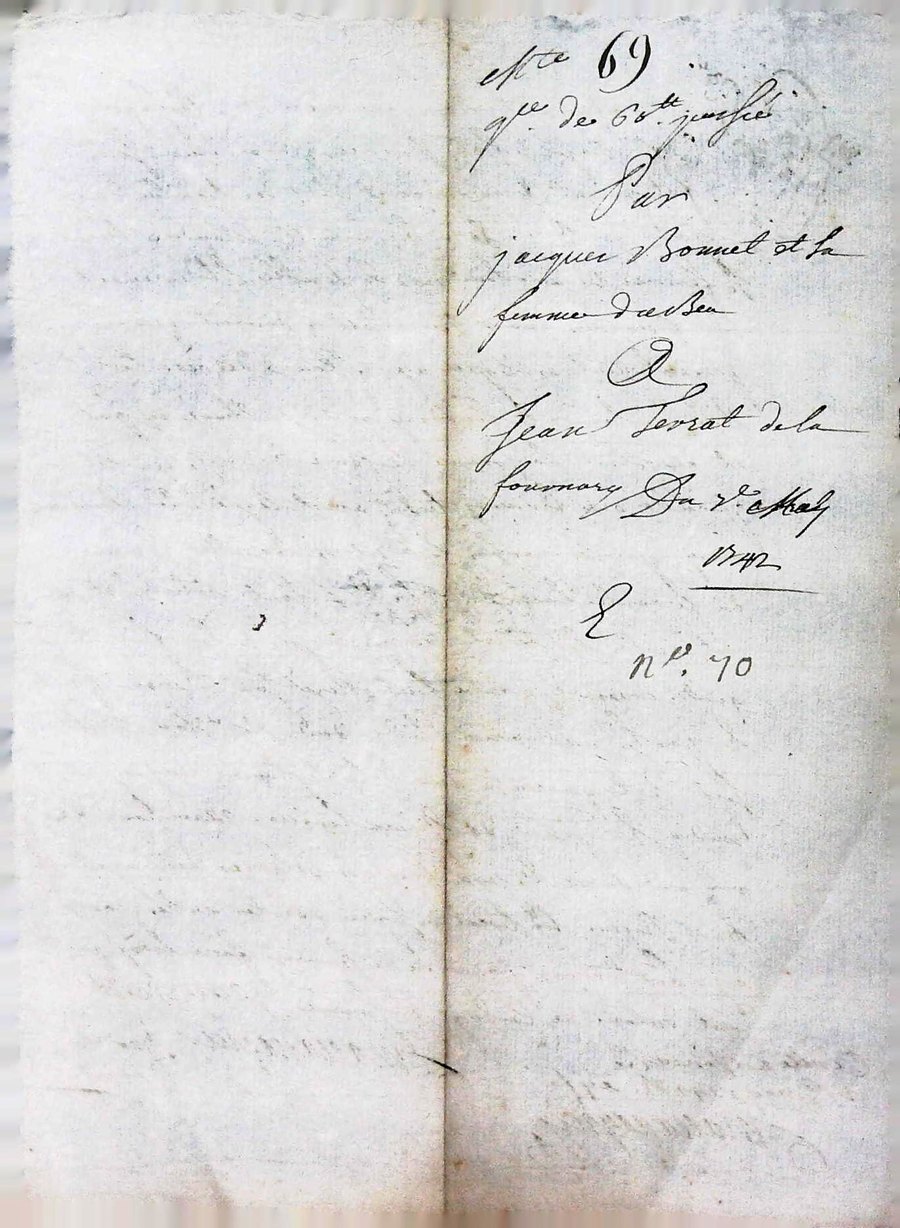 69
qce de 60tt passée
Par
jacques Bonnet et sa
femme
A
Jean Terrat de la
fournary Du 7e May
1742
E
no. 70